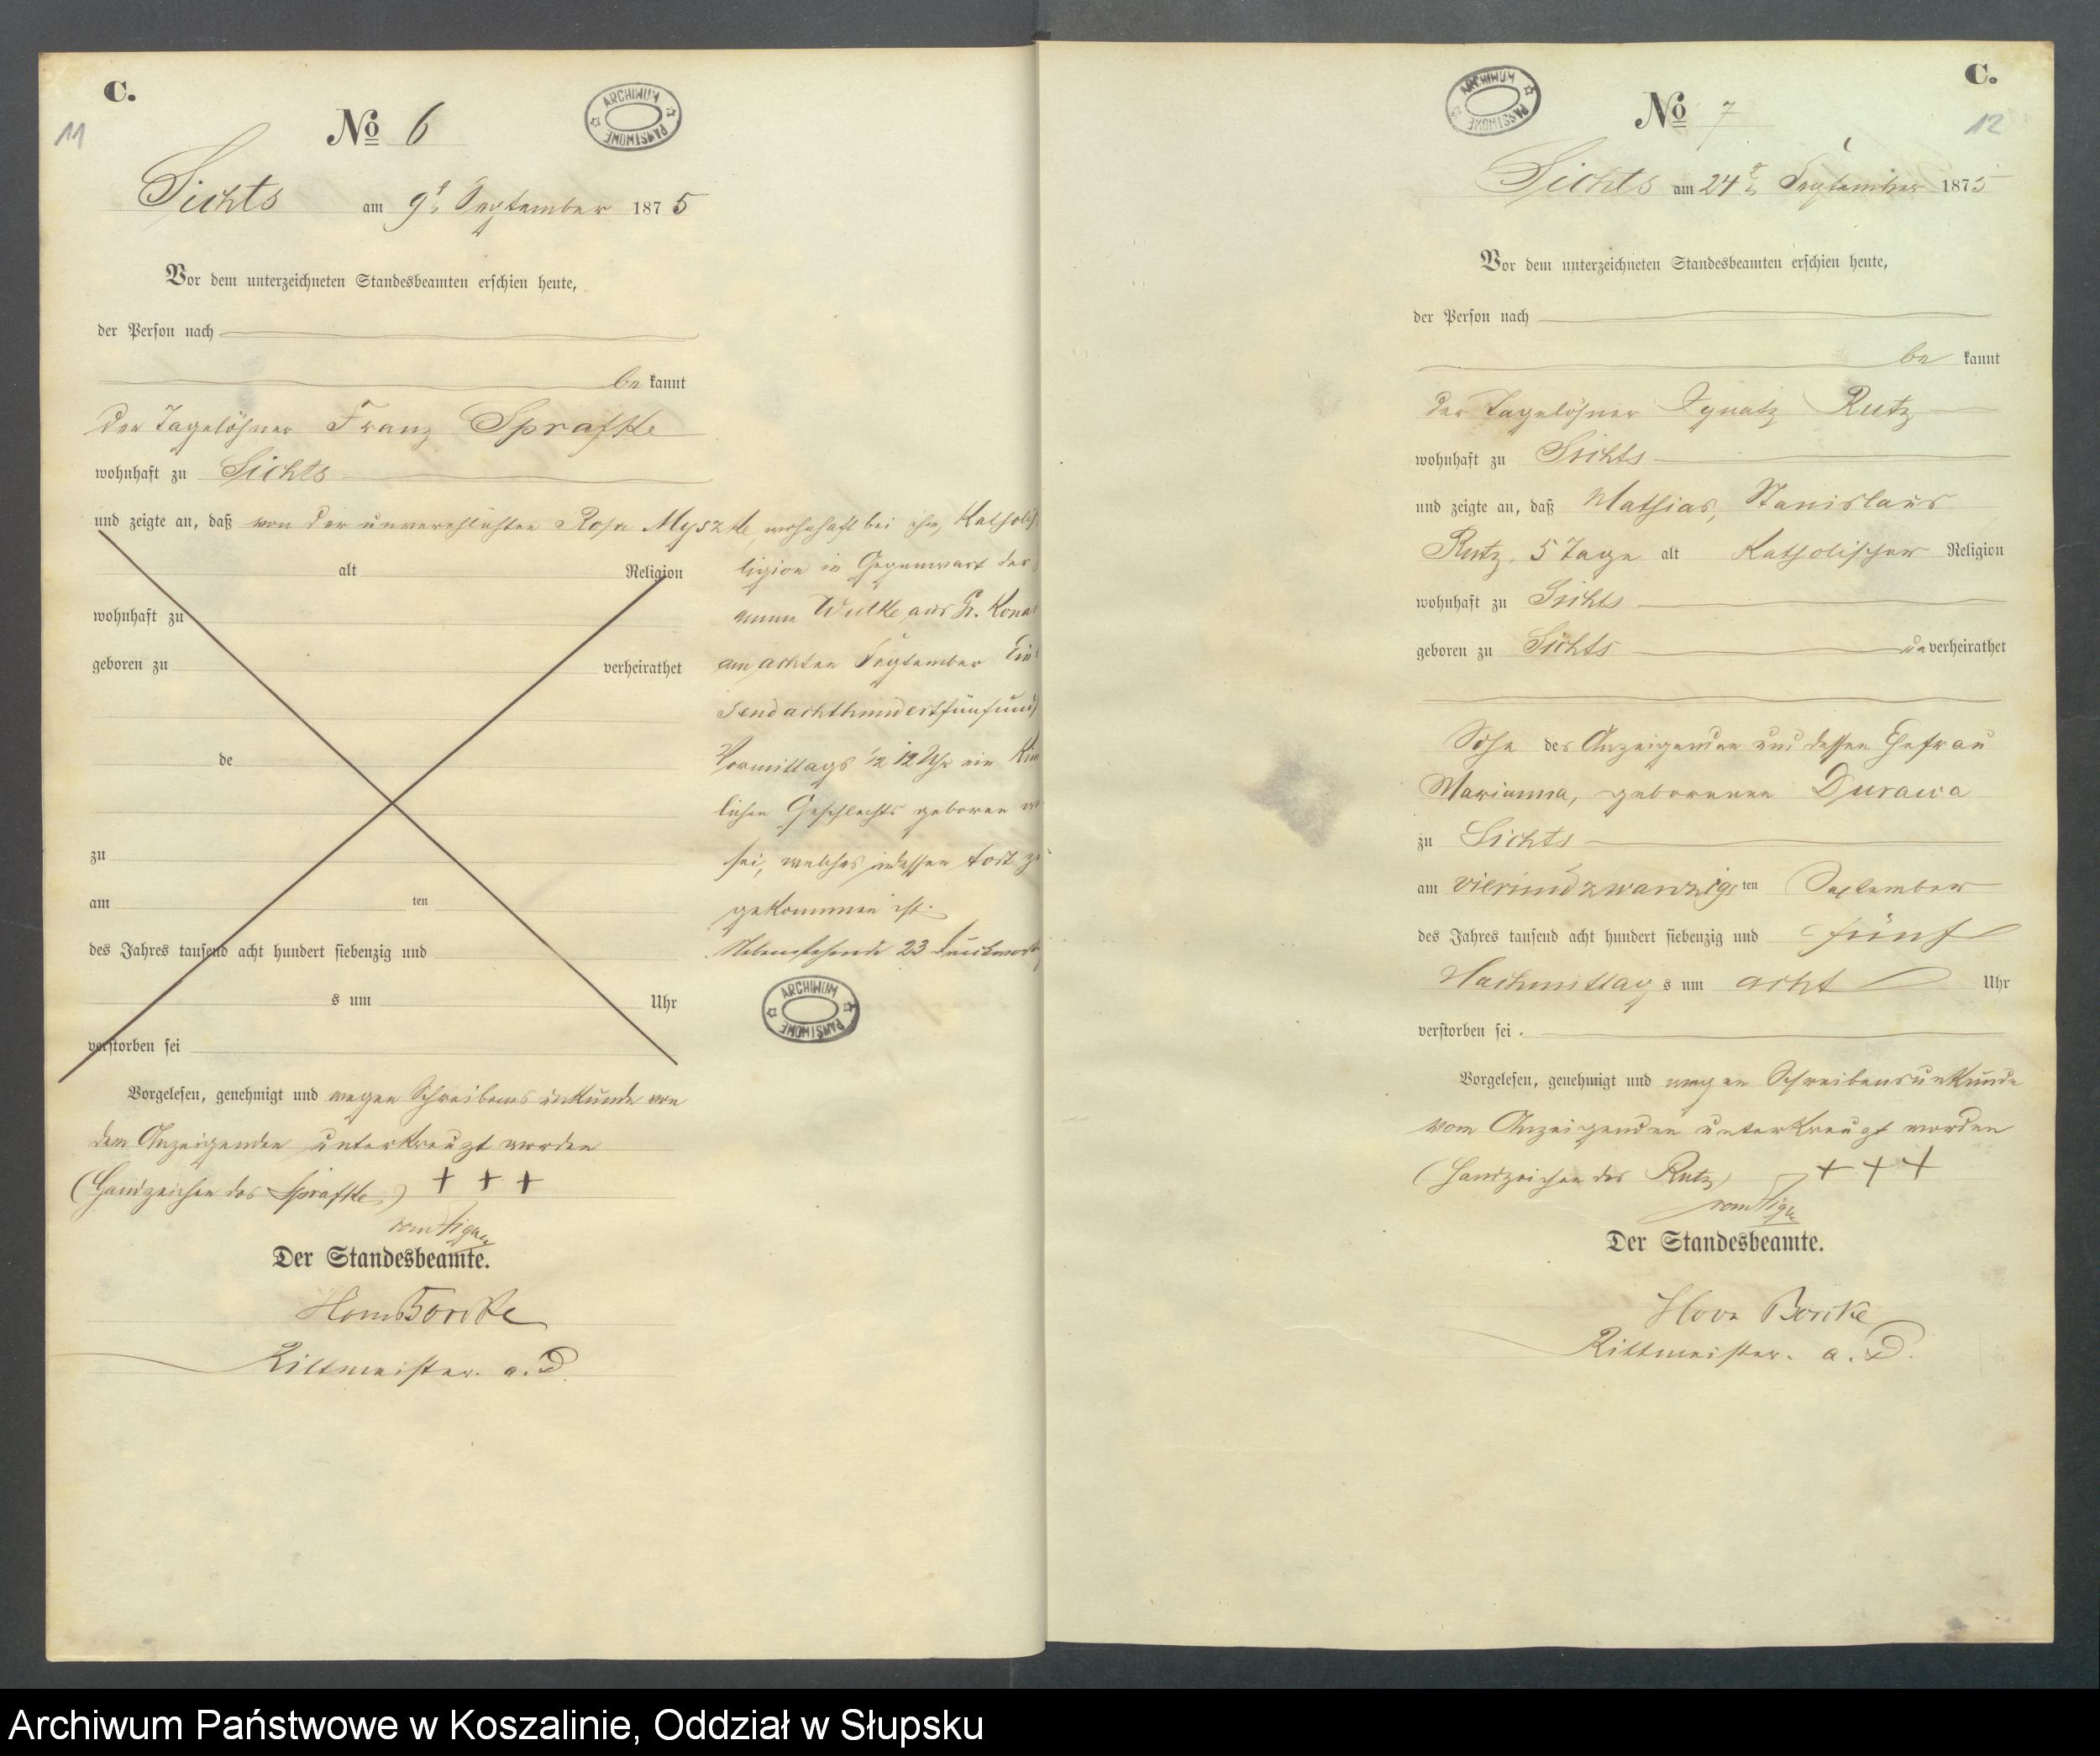 C.
11
No 6
ARCHIWUM PAŃSTWOWE
Sichts am 9t September 1875
Vor dem unterzeichneten Standesbeamten erschien heute,
der Person nach
be kannt
der Tagelöhner Franz Sprafke
wohnhaft zu Sichts
und zeigte an, daß von der unverehelichten Rosa Myszke, wohnhaft bei ihm, Katholisch
alt Religion
ligion in Gegenwart der
wohnhaft zu
amme Wulke aus Gr. Kona
geboren zu verheirathet
am achten September Ein
sendachthundertfünfund
de
Vormittags ½ 12 Uhr ein Kin
lichen Geschlechts geboren
zu
sei, welches indessen todt zu
am ten
gekommen ist.
des Jahres tausend acht hundert siebenzig und
Nebenstehende 23 Druckworte
s um Uhr
ARCHIWUM PAŃSTWOWE
verstorben sei
Vorgelesen, genehmigt und wegen Schreibens unkunde von
dem Anzeigenden unterkreuzt worden
(Handzeichen des Sprafke) + + +
Der Standesbeamte.
Rittmeister a. D.
C.
12
No 7
ARCHIWUM PAŃSTWOWE
Sichts am 24t September 1875
Vor dem unterzeichneten Standesbeamten erschien heute,
der Person nach
be kannt
der Tagelöhner Ignatz Rutz
wohnhaft zu Sichts
und zeigte an, daß Mathias, Stanislaus
Rutz, 5 Tage alt Katholischer Religion
wohnhaft zu Sichts
geboren zu Sichts un verheirathet
Sohn des Anzeigenden und dessen Ehefrau
Marianna, geborenen Durawa
zu Sichts
am vierundzwanzigs ten September
des Jahres tausend acht hundert siebenzig und fünf
Nachmittag s um acht Uhr
verstorben sei.
Vorgelesen, genehmigt und wegen Schreibensunkunde
vom Anzeigenden unterkreuzt worden
(Handzeichen des Rutz) + + +
Der Standesbeamte.
Borcke
Rittmeister. a. D.
Archiwum Państwowe w Koszalinie, Oddział w Słupsku